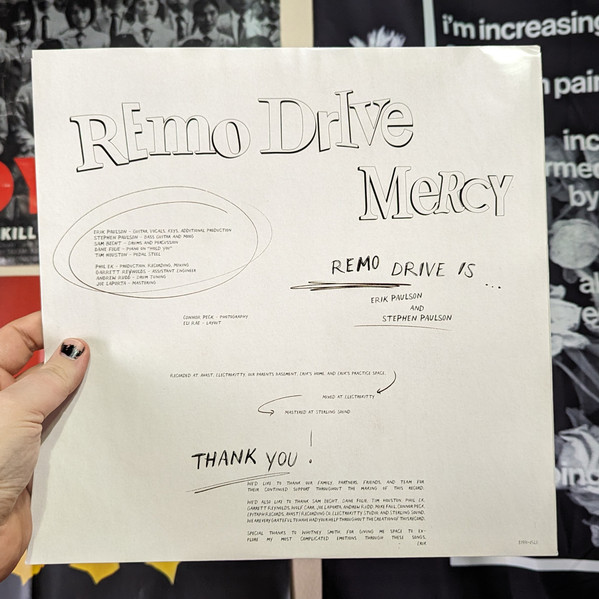 i'm increasing
pain
inc
rmed
by
KILL
Remo Drive
Mercy
ERIK PAULSON - GUITAR, VOCALS, KEYS, ADDITIONAL PRODUCTION
STEPHEN PAULSON - BASS GUITAR AND PIANO
SAM BECHT - DRUMS AND PERCUSSION
DANE FOLIE - PIANO ON "HOLD YOU"
TIM HOUSTON - PEDAL STEEL
PHIL EK - PRODUCTION, RECORDING, MIXING
GARRETT REYNOLDS - ASSISTANT ENGINEER
ANDREW RUDD - DRUM TUNING
JOE LAPORTA - MASTERING
CONNOR PECK - PHOTOGRAPHY
ELI RAE - LAYOUT
REMO DRIVE IS ...
ERIK PAULSON
AND
STEPHEN PAULSON
RECORDED AT AVAST, ELECTRAKITTY, OUR PARENTS BASEMENT, ERIK'S HOME, AND ERIK'S PRACTICE SPACE
MIXED AT ELECTRAKITTY
MASTERED AT STERLING SOUND
THANK YOU!
WE'D LIKE TO THANK OUR FAMILY, PARTNERS, FRIENDS, AND TEAM FOR
THEIR CONTINUED SUPPORT THROUGHOUT THE MAKING OF THIS RECORD.
WE'D ALSO LIKE TO THANK SAM BECHT, DANE FOLIE, TIM HOUSTON, PHIL EK,
GARRETT REYNOLDS, WOLF CARR, JOE LAPORTA, ANDREW RUDD, MIKE PAUL, CONNOR PECK,
EPITAPH RECORDS, AVAST RECORDING CO, ELECTROKITTY STUDIO, AND STERLING SOUND.
WE ARE VERY GRATEFUL TO HAVE HAD YOUR HELP THROUGHOUT THE CREATION OF THIS RECORD.
SPECIAL THANKS TO WHITNEY SMITH FOR GIVING ME SPACE TO EX-
PLORE MY MOST COMPLICATED EMOTIONS THROUGH THESE SONGS.
ERIK